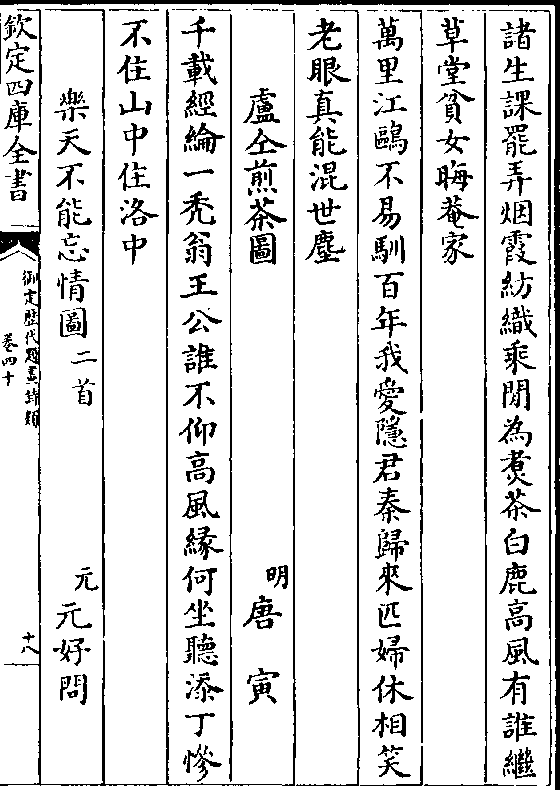 諸生課罷弄烟霞紡織乘閒為煑茶白鹿高風有誰繼
草堂貧女晦菴家
萬里江鷗不易馴百年我愛隱君秦歸來匹婦休相笑
老眼真能混世塵
盧仝煎茶圖
明唐寅
千載經綸一禿翁王公誰不仰高風緣何坐聽添丁慘
不住山中住洛中
樂天不能忘情圖二首
元元好問
欽定四庫全書
御定歴代題畫詩類
卷四十
十八